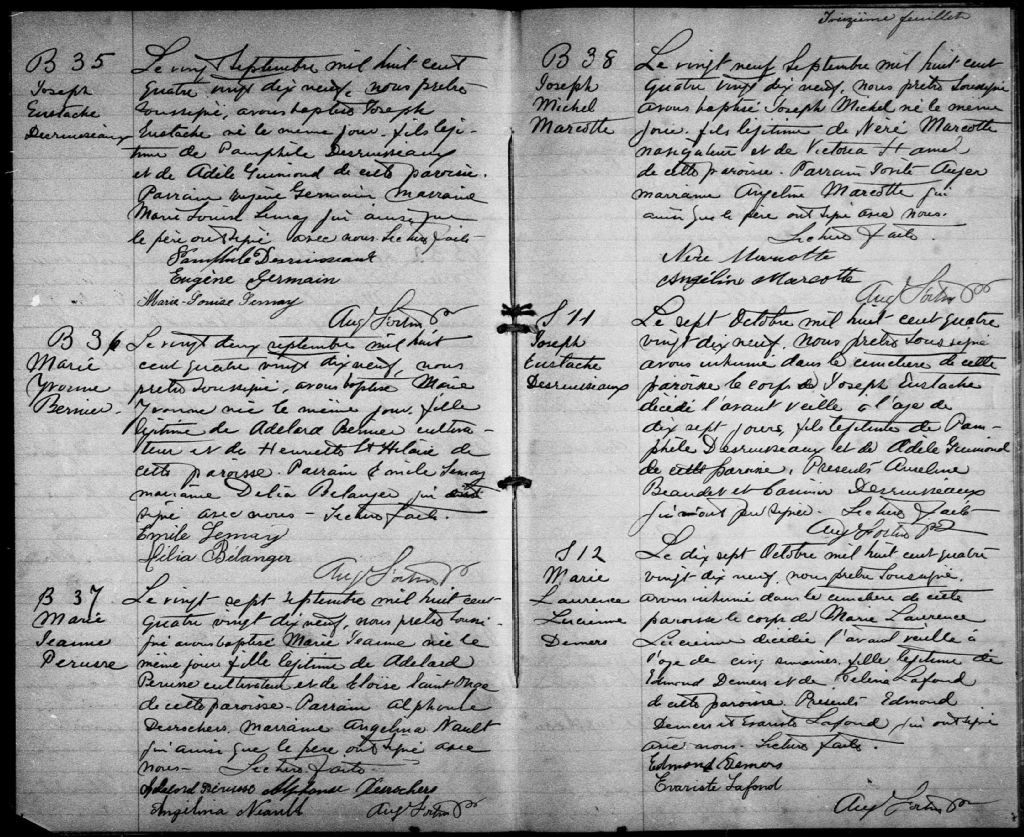 B 35
Joseph
Eustache
Desruisseaux
Le vingt septembre mil huit cent
quatre vingt dix neuf, nous prêtre
soussigné, avons baptisé Joseph
Eustache né le même jour, fils légi-
time de Pamphile Desruisseaux
et de Adèle Guimond de cette paroisse.
Parrain Eugène Germain marraine
Marie Louise Lemay qui ainsi que
le père ont signé avec nous. Lecture faite
Pamphile Desruisseaux
Eugène Germain
Marie-Louise Lemay
Aug Fortin ptr
B 36
Marie
Yvonne
Bernier.
Le vingt deux septembre mil huit
cent quatre vingt dix neuf, nous
prêtre soussigné, avons baptisé Marie
Yvonne née le même jour, fille
légitime de Adelard Bernier cultiva-
teur et de Henriette St Hilaire de
cette paroisse. Parrain Emile Lemay
marraine Delia Belanger qui ont
signé avec nous - Lecture faite.
Emile Lemay
Délia Bélanger
Aug Fortin ptr
B 37
Marie
Jeanne
Perusse
Le vingt sept septembre mil huit cent
quatre vingt dix neuf, nous prêtre soussi-
gné avons baptisé Marie Jeanne née le
même jour fille légitime de Adelard
Perusse cultivateur et de Eloise Saint Onge
de cette paroisse - Parrain Alphonse
Desrochers, marraine Angelina Nault
qui ainsi que le père ont signé avec
nous - Lecture faite
Adelard Perusse Alphonse Desrochers
Angelina Neault Aug Fortin ptr
Treizième feuillet
B 38
Joseph
Michel
Marcotte
Le vingt neuf Septembre mil huit cent
quatre vingt dix neuf, nous prêtre soussigné
avons baptisé Joseph Michel né le même
jour, fils légitime de Néré Marcotte
navigateur et de Victoria Hamel
de cette paroisse. Parrain Jovite Auger
marraine Angeline Marcotte qui
ainsi que le père ont signé avec nous.
Lecture faite.
Néré Marcotte
Angélin Marcotte
Aug Fortin ptr
S 11
Joseph
Eustache
Desruisseaux
Le sept Octobre mil huit cent quatre
vingt dix neuf, nous prêtre soussigné
avons inhumé dans le cimetière de cette
paroisse le corps de Joseph Eustache
décédé l'avant veille à l'age de
dix sept jours, fils légitime de Pam-
phile Desruisseaux et de Adele Guimond
de cette paroisse. Présents Ameline
Beaudet et Casimir Desruisseaux
qui n'ont pu signer. Lecture faite
Aug Fortin ptr
S 12
Marie
Laurence
Lucienne
Demers
Le dix sept Octobre mil huit cent quatre
vingt dix neuf, nous prêtre soussigné,
avons inhumé dans le cimetière de cette
paroisse le corps de Marie Laurence
Lucienne décédée l'avant veille à
l'age de cinq semaines, fille légitime de
Edmond Demers et de Célina Lafond
de cette paroisse. Présents Edmond
Demers et Evariste Lafond qui ont signé
avec nous. Lecture faite.
Edmond Demers
Evariste Lafond
Aug Fortin ptr